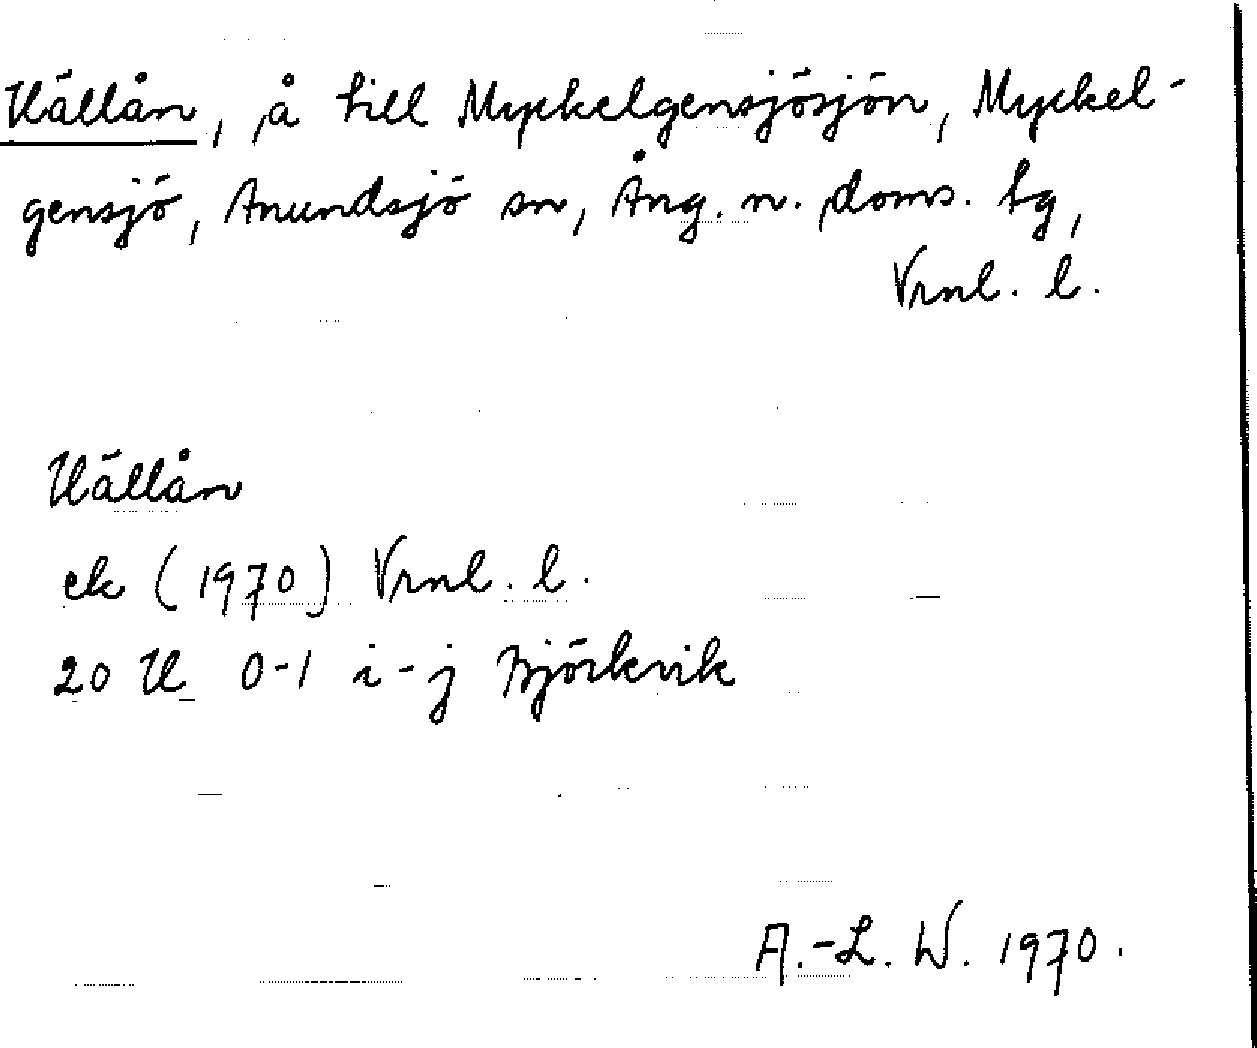 Hällån, å till Myckelgensjösjön, Myckel-
gensjö, Anundsjö sn, Ång. n. doms. tg,
Vrnl. l.
Hällån
ek (1970) Vrnl. l.
20 H 0-1 i-j Björkvik
A.-L. W. 1970.